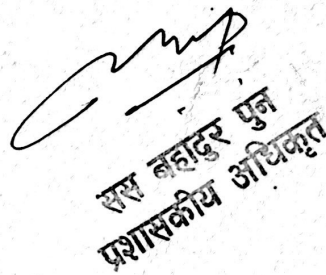 सस बहादुर पुन
प्रशासकीय अधिकृत